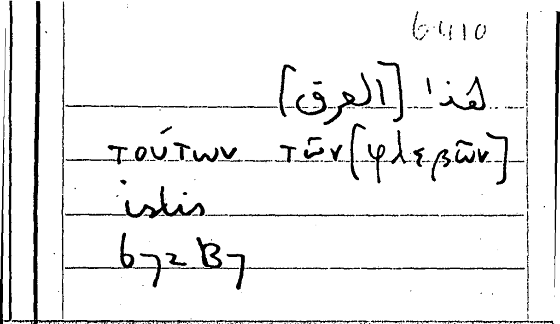 6410
هذا [العرق]
τούτων τῶν [φλεβῶν]
istis
672 B7